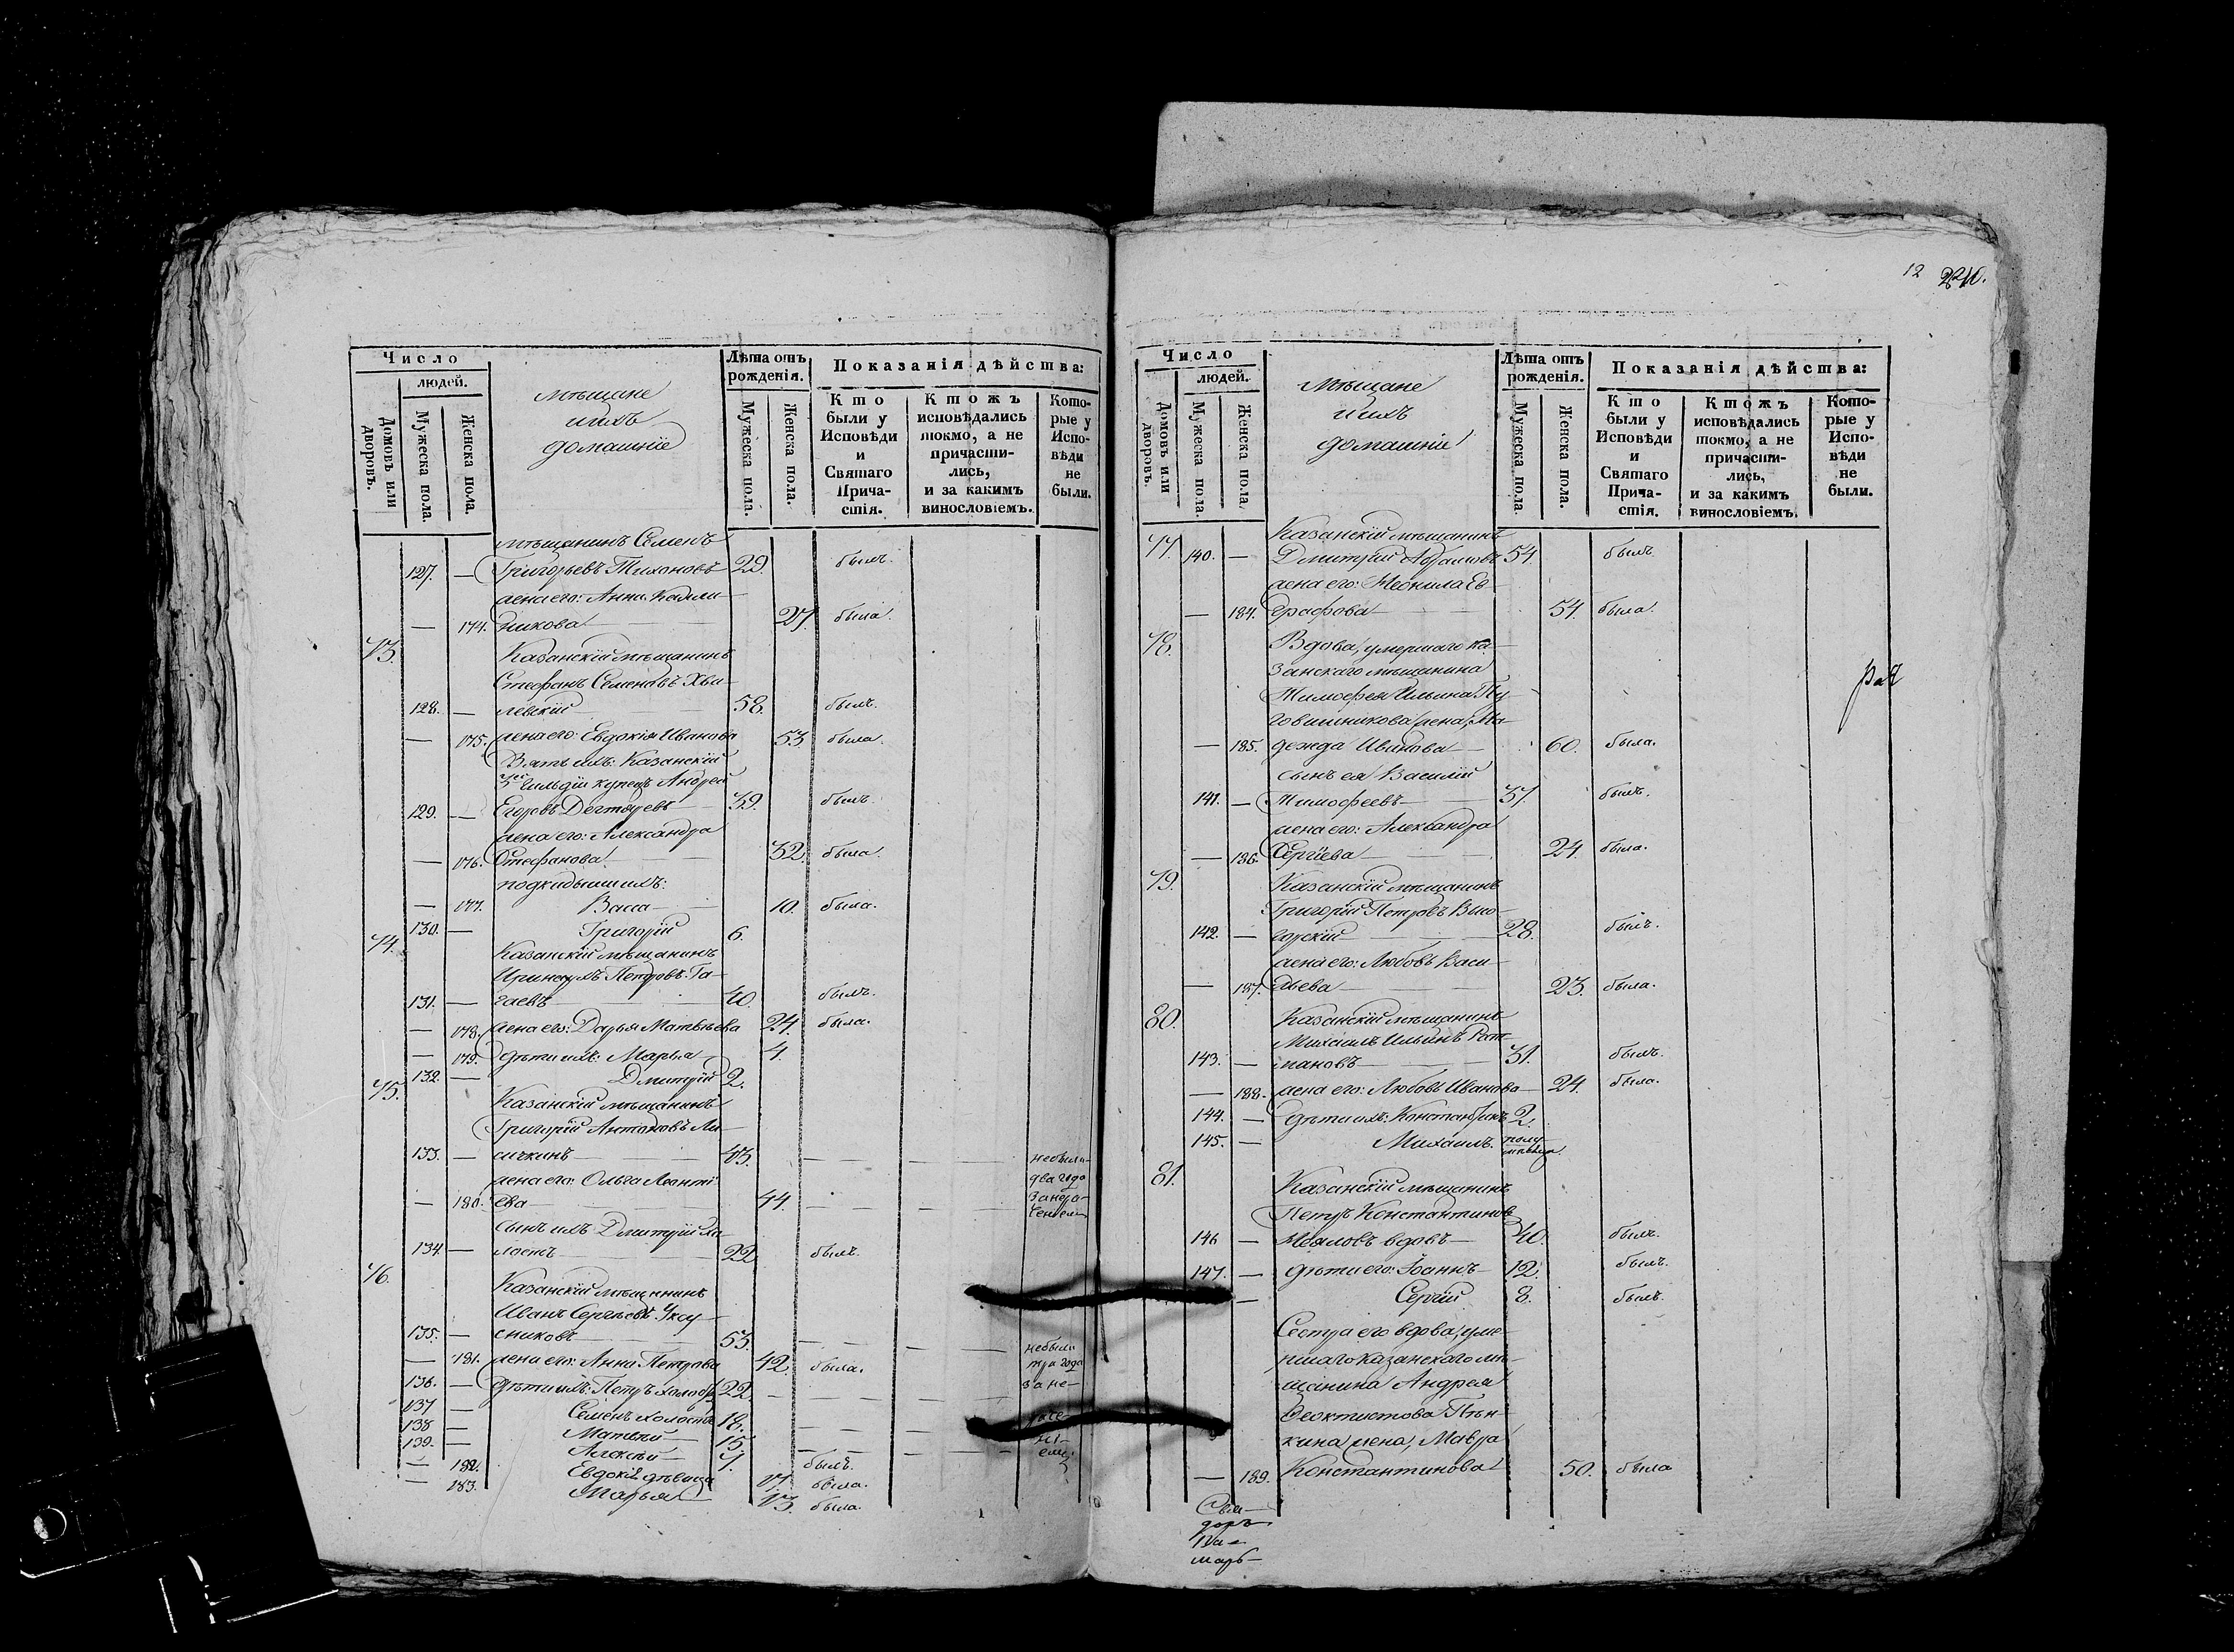 12
Число
людей.
Домовъ или дворовъ.
Мужеска пола.
Женска пола.
мѣщане
ихъ
домашніе
Лѣта отъ рожденія.
Мужеска пола.
Женска пола.
Показанія дѣйства:
Кто были у Исповѣди и Святаго Прича-стія.
Ктожъ исповѣдались токмо, а не причасти-лись, и за какимъ винословіемъ.
Кото-рые у Испо-вѣди не были.
мѣщанинъ Семенъ
127. — Григорьевъ Тихоновъ 29. былъ.
жена его: Анна
— 174. никова 27. была.
73. Казанскій мѣщанинъ
Стефанъ Семеновъ Хва-
128. — левскій 58. былъ.
— 175. жена его: Евдокія Иванова 53. была.
Зять ихъ: Казанскій
3ей гильдіи купецъ Андрей
129. — Егоровъ Дегтяревъ 39. былъ.
жена его: Александра
— 176. Стефанова 32. была.
подкидыши ихъ:
— 177. Васса 10. была.
130. — Григорій 6.
74. Казанскій мѣщанинъ
Петровъ Га-
131. — гаевъ 40. былъ.
— 178. жена его: Дарья Матвѣева 24. была.
— 179. дѣти ихъ: Марья 4.
132. — Дмитрій 2.
75. Казанскій мѣщанинъ
Григорій Антоновъ Ли-
133. — сичкинъ 43. — — — небыли
жена его: Ольга Леонті- два года
— 180. ева 44. — — — за нера-
ченіемъ
сынъ ихъ Дмитрій хо-
134. — лостъ 22. былъ.
76. Казанскій мѣщанинъ
Иванъ Сергѣевъ Уксу-
135. — сниковъ 53. — — — небыли
— 181. жена его: Анна Петрова 42. была. три года
136. — дѣти ихъ: Петръ холостъ 22. — — за не-
137 — Семенъ холостъ 18. — —
138 — Матвѣй 15. — —
139. — Алексѣй 7. былъ.
— 182. Евдокія дѣвица 17. была.
— 183. Марья 13. была.
Число
людей.
Домовъ или дворовъ.
Мужеска пола.
Женска пола.
Мѣщане
ихъ
домашніе
Лѣта отъ рожденія.
Мужеска пола.
Женска пола.
Показанія дѣйства:
Кто были у Исповѣди и Святаго Прича-стія.
Ктожъ исповѣдались токмо, а не причасти-лись, и за какимъ винословіемъ.
Кото-рые у Испо-вѣди не были.
Казанскій мѣщанинъ
77. 140. — Дмитрій Абрамовъ 54. былъ.
жена его: Неонила Ев-
— 184. графова 54. была.
78. Вдова, умершаго Ка-
занскаго мѣщанина
Тимофея Ильина Пу-
говишникова жена, На-
— 185. дежда Иванова 60. была.
сынъ ея Василій
141. — Тимофеевъ 37. былъ.
жена его: Александра
— 186. Сергіева 24. была.
79. Казанскій мѣщанинъ
Григорій Петровъ Выso-
142. — горскій 28. былъ.
жена его: Любовь Васи-
— 187. льева 23. была.
80. Казанскій мѣщанинъ
Михаилъ Ильинъ Рат-
143. — мановъ 31. былъ.
— 188. жена его: Любовь Иванова 24. была.
144. — дѣти ихъ: Константинъ 2.
145. — Михаилъ. полу-
мѣсяца.
81. Казанскій мѣщанинъ
Петръ Константиновъ
146 — вдовъ 40. былъ.
147. — дѣти его: Іоаннъ 12. былъ.
— Сергій 8. былъ.
Сестра его вдова, уме-
ршаго Казанскаго мѣ-
щанина Андрея
Феоктистова Пѣн-
кина жена, Мавра
— 189. Константинова 50. была